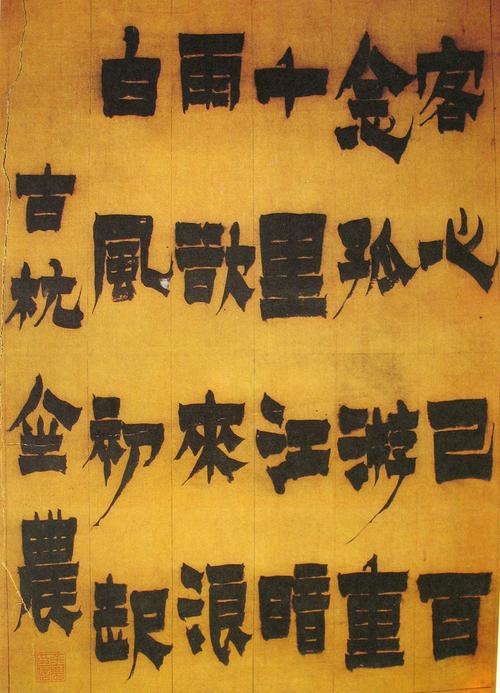 客心已百
念孤游重
千里江暗
雨歆來浪
白風初起
古杭金農